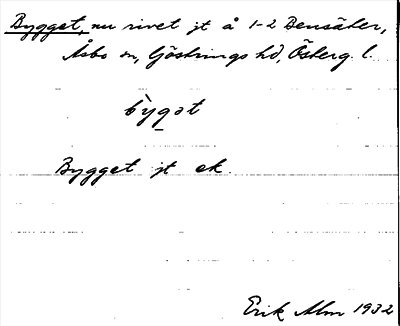 Bygget, nu rivet jt å 1-2 Bensäter,
Åsbo sn, Göstrings hd, Österg. l.
bỳgət
Bygget jt ek.
Erik Alm 1932